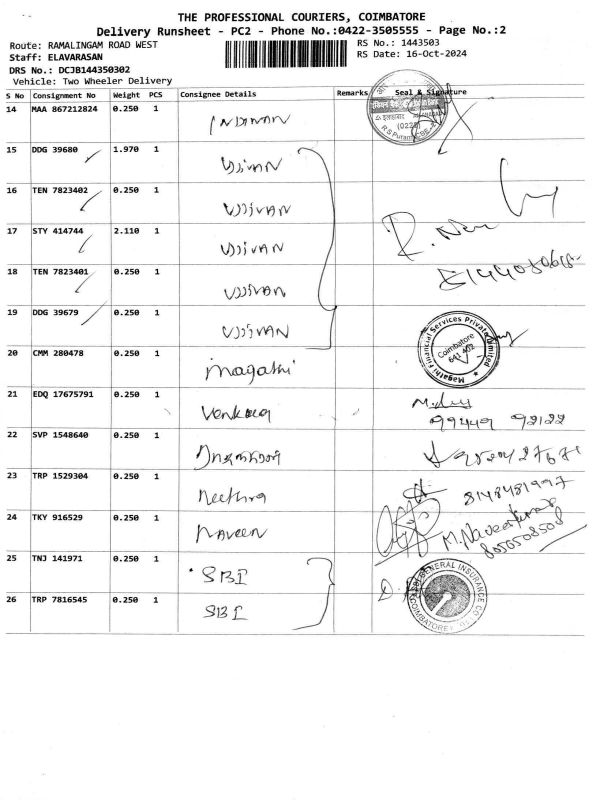 THE PROFESSIONAL COURIERS, COIMBATORE
Delivery Runsheet - PC2 - Phone No.:0422-3505555 - Page No.:2
Route: RAMALINGAM ROAD WEST
RS No.: 1443503
Staff: ELAVARASAN
RS Date: 16-Oct-2024
DRS No.: DCJB144350302
Vehicle: Two Wheeler Delivery
S No Consignment No Weight PCS Consignee Details Remarks Seal & Signature
14 MAA 867212824 0.250 1 INDIAN
15 DDG 39680 1.970 1 UJJIVAN
16 TEN 7823402 0.250 1 UJJIVAN
17 STY 414744 2.110 1 UJJIVAN
R. Nar
18 TEN 7823401 0.250 1 UJJIVAN
19 DDG 39679 0.250 1 UJJIVAN
20 CMM 280478 0.250 1 magathi
Magathi Financial Services Private Limited
Coimbatore
641 402
21 EDQ 17675791 0.250 1
99449 92122
22 SVP 1548640 0.250 1
23 TRP 1529304 0.250 1 Nethra
8148481997
24 TKY 916529 0.250 1 NAVEEN
M. Naveenkumar
8050508508
25 TNJ 141971 0.250 1 SBI
SBI GENERAL INSURANCE CO
COIMBATORE
26 TRP 7816545 0.250 1 SBI